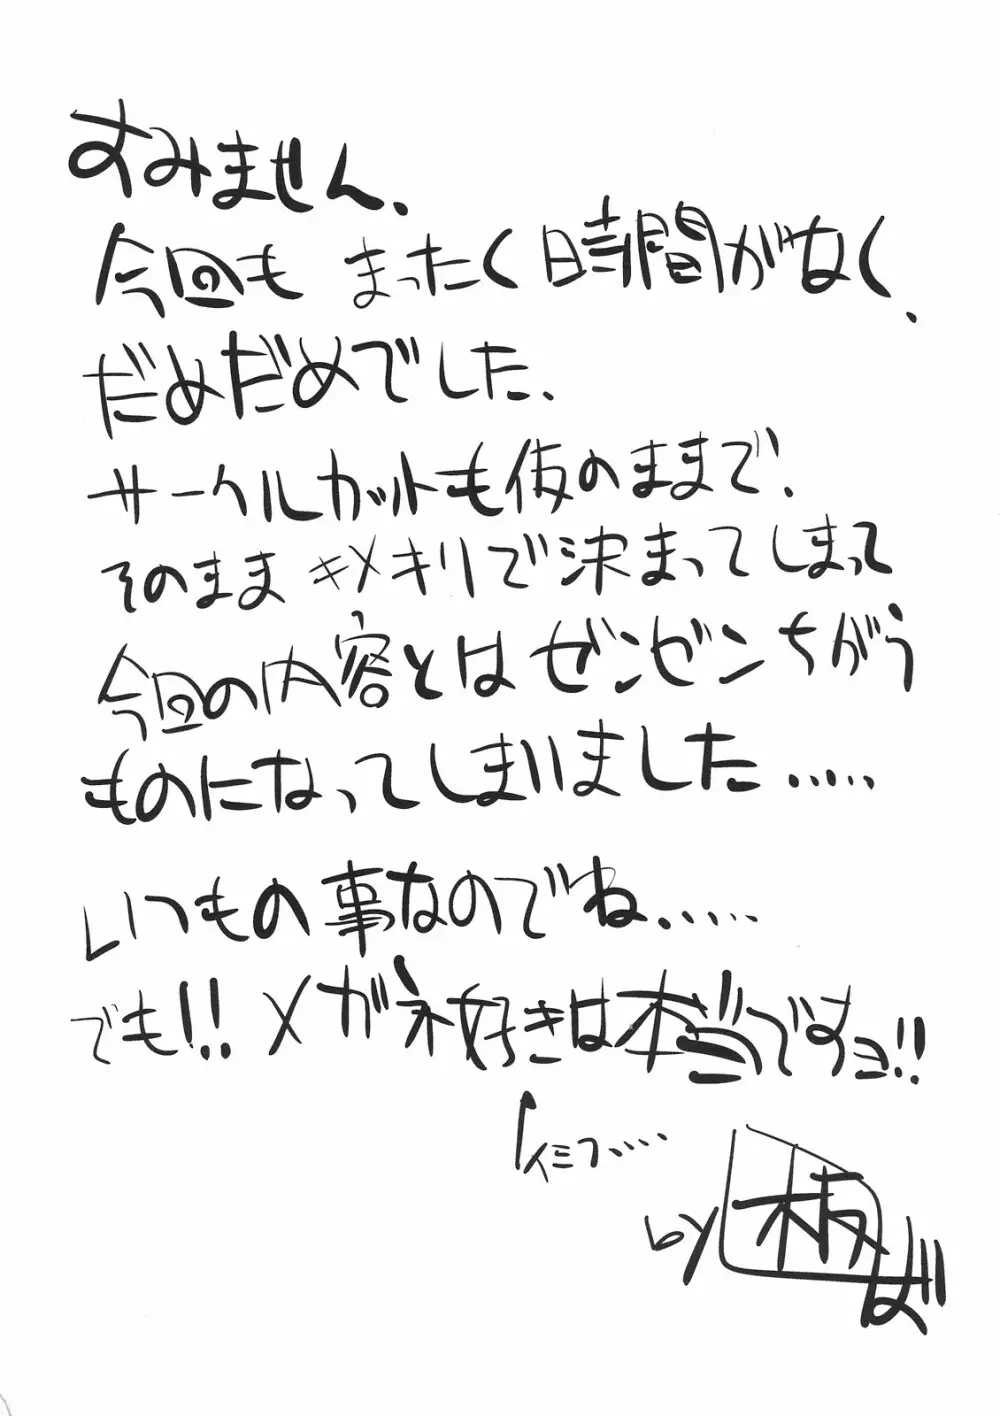 すみません.
今回も まったく時間がなく.
だめだめでした.
サークルカットも仮のままで.
そのままキメキリで決まってしまって
今回の内容とはゼンゼンちがう
ものになってしまいました.....
いつもの事なのでね.....
でも!!メガネ好きは本当ですョ!!
イミフ.....
by 板ば